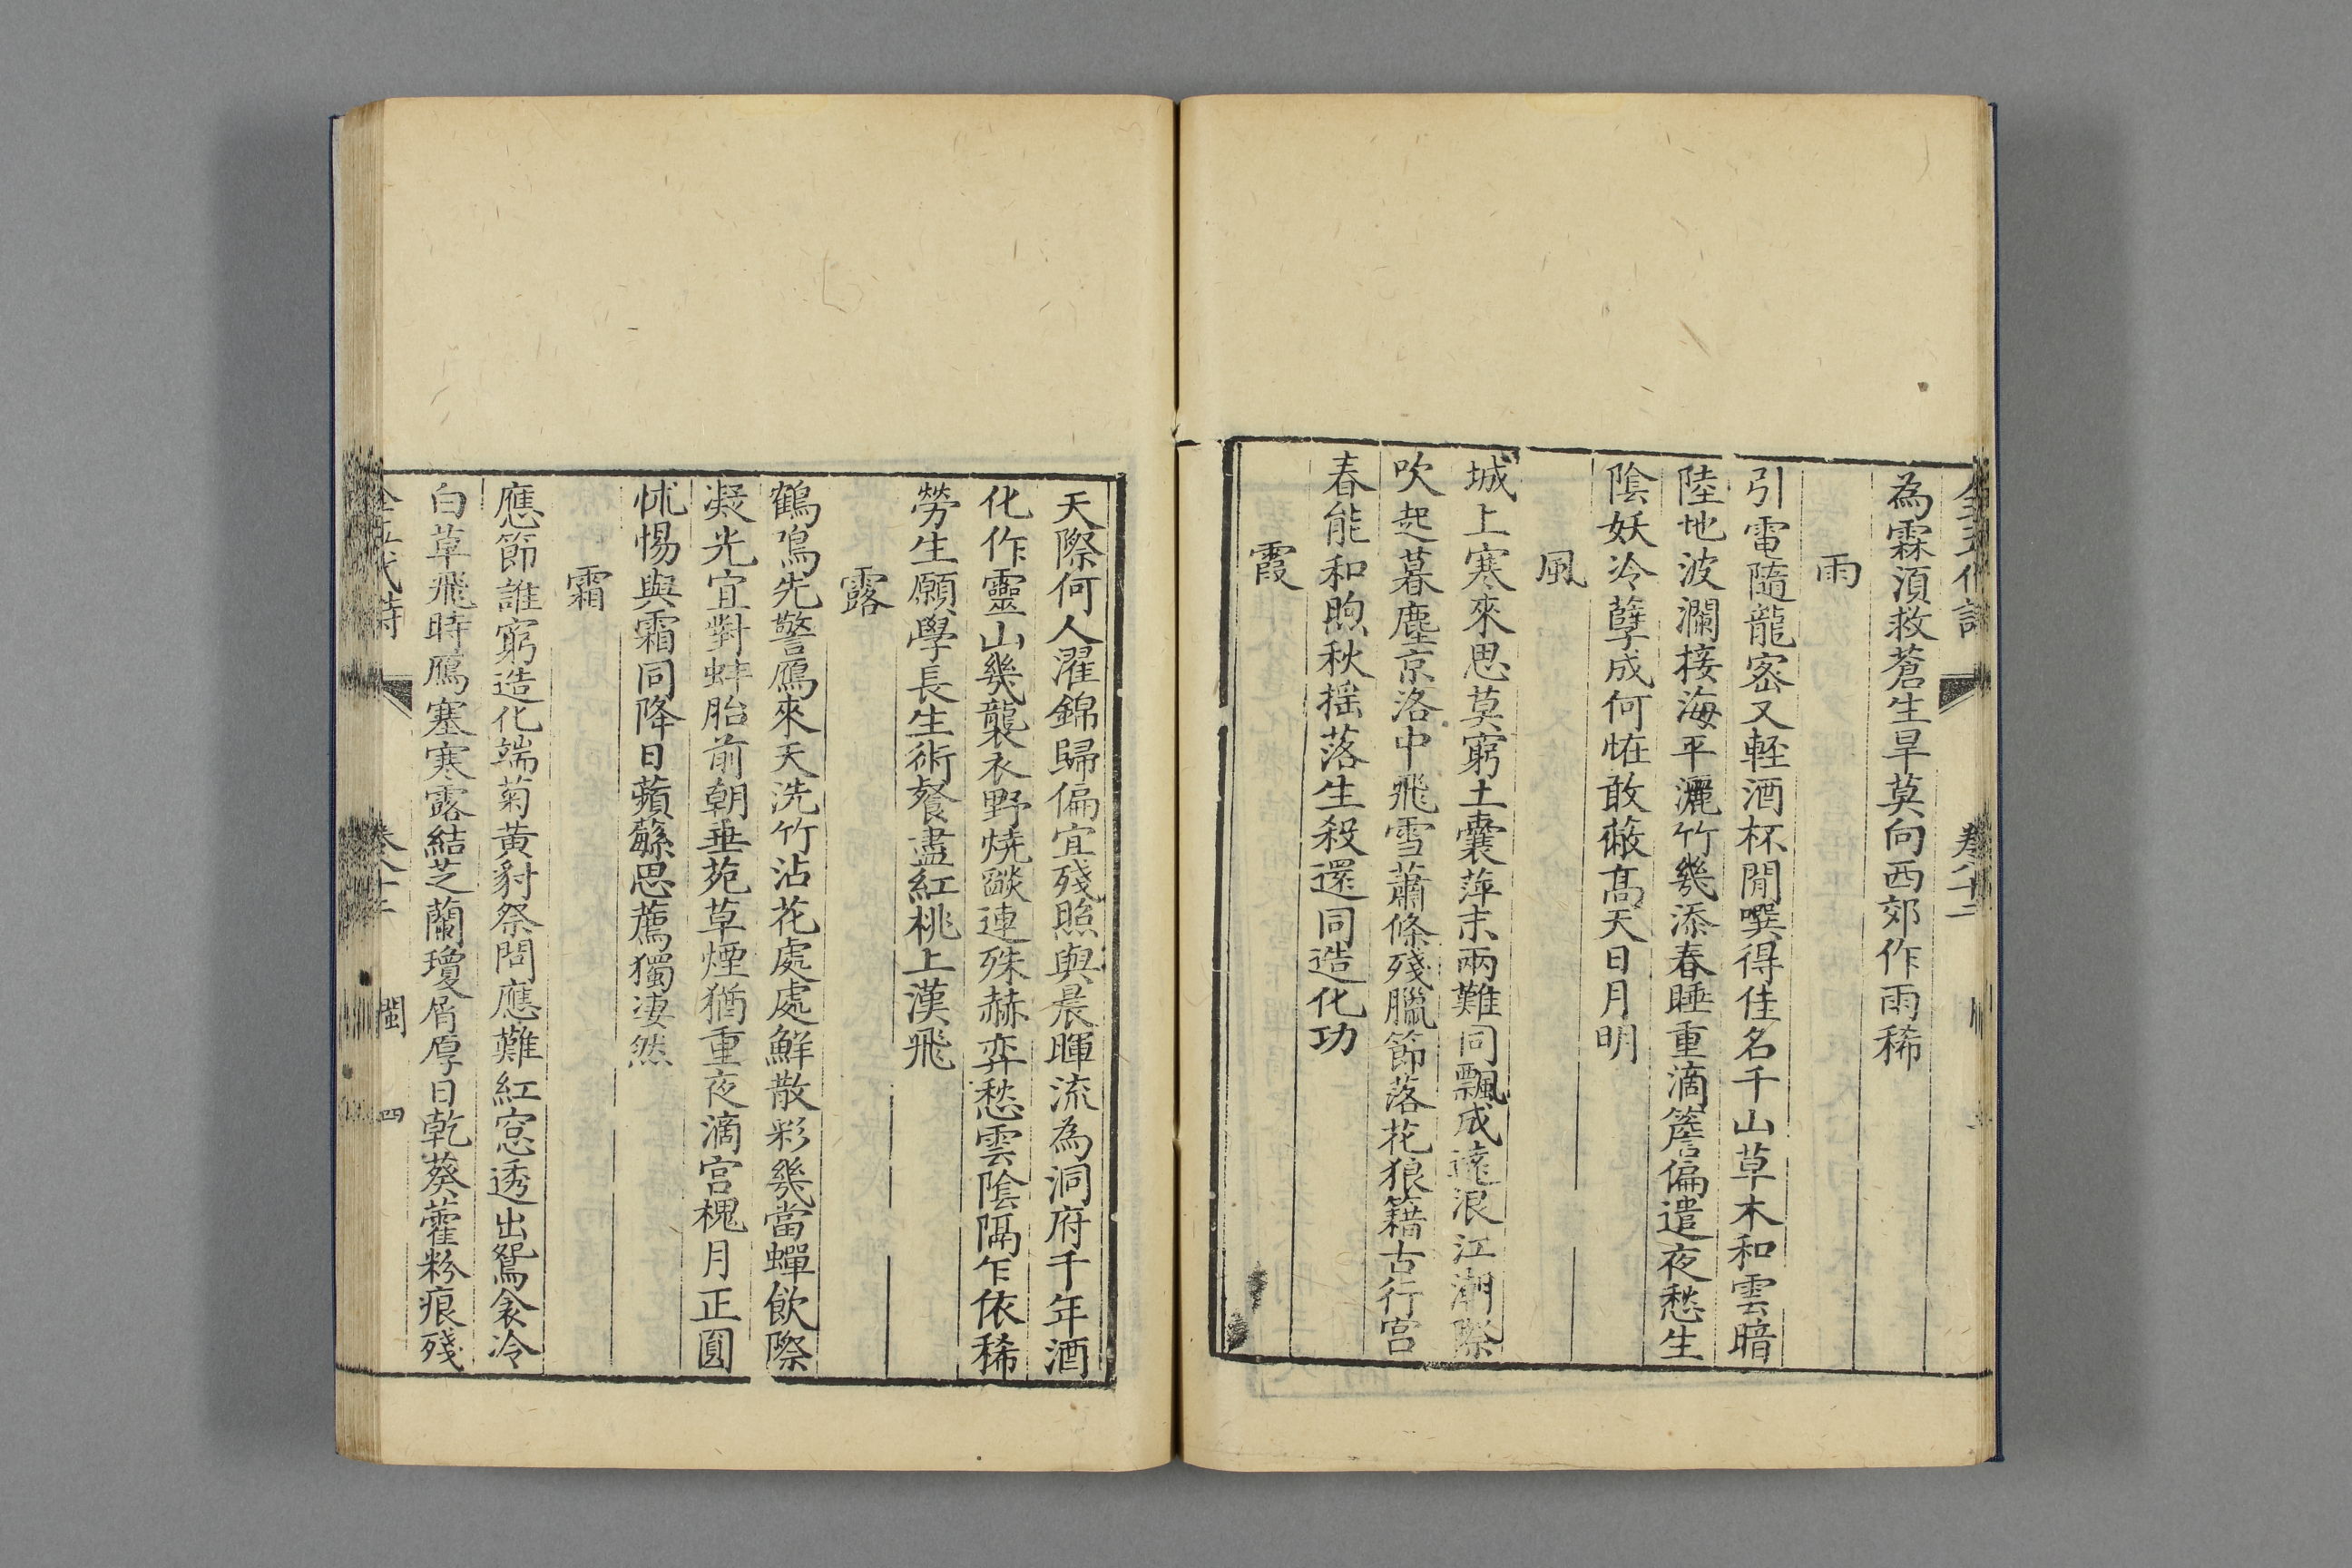 為霖湏救蒼生旱莫向西郊作雨稀
雨
引電隨龍密又輕酒杯閒噀得佳名千山草木和雲暗
陸地波瀾接海平灑竹幾添春睡重滴簷偏遣夜愁生
陰妖冷孽成何恠敢蔽髙天日月明
風
城上寒來思莫窮土囊萍末兩難同飄成遠浪江湖際
吹起暮塵京洛中飛雪蕭條殘臘節落花狼籍古行宫
春能和煦秋揺落生殺還同造化功
霞
天際何人濯錦歸偏宜殘照與晨暉流為洞府千年酒
化作靈山幾襲衣野燒燄連殊赫弈愁雲陰隔乍依稀
勞生願學長生術餐盡紅桃上漢飛
露
鶴鳴先警鴈來天洗竹沾花處處鮮散彩幾當蟬飲際
凝光宜對蚌胎前朝垂苑草煙猶重夜滴宫槐月正圓
怵惕與霜同降日蘋蘩思薦獨凄然
霜
應節誰窮造化端菊黄豺祭問應難紅窓透出鴛衾冷
白草飛時鴈塞寒露結芝蘭瓊屑厚日乾葵藿粉痕殘
全五代詩 卷八十二 閩 四